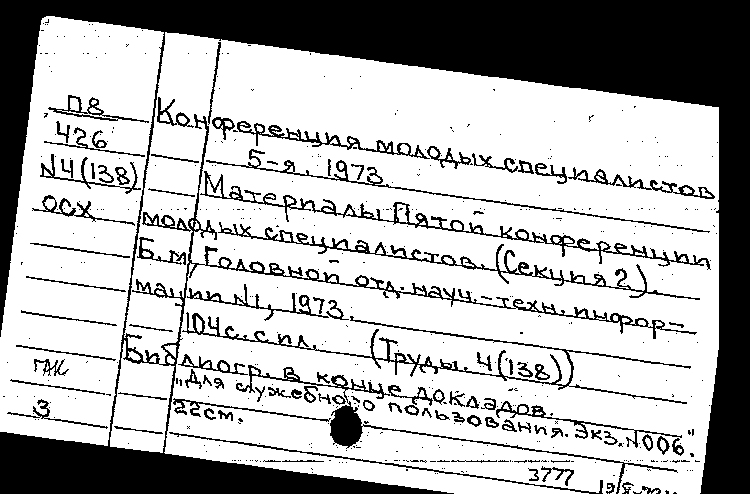 П8
426
N4(138)
ОСХ
Конференция молодых специалистов
5-я. 1973.
Материалы Пятой конференции
молодых специалистов. (Секция 2).
Б.м, Головной отд. науч.-техн. инфор-
мации N1, 1973.
104с. с ил. (Труды. 4(138))
Библиогр. в конце докладов.
„Для служебного пользования. Экз. N006."
22см.
ГАК
3
3777